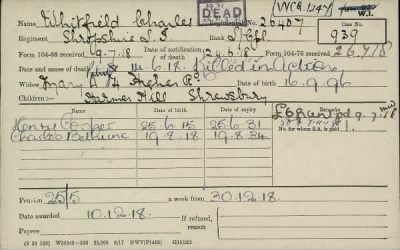 Name Whitfield Charles No. 26407 WCB 1247 W.I.
DEAD
Regiment Shropshire L.I. Rank L/Cpl Case No. 939
Form 104-88 received 9.7.18 Date of notification of death 24.6.18 Form 104-76 received 26.7.18
Date and cause of death 14.6.18. Killed in Action
Widow Mary A. 4 Higher Rd Date of birth 16.9.96
Children:— Harmer Hill Shrewsbury
Name Date of birth Date of expiry Remarks
Henry Cooper 25.6.15 25.6.31
Charles Bethune 19.8.18 19.8.34
No. for whom S.A. is paid
Pension 25/5 a week from 30.12.18.
Date awarded 10.12.18. If refused, reason
Papers